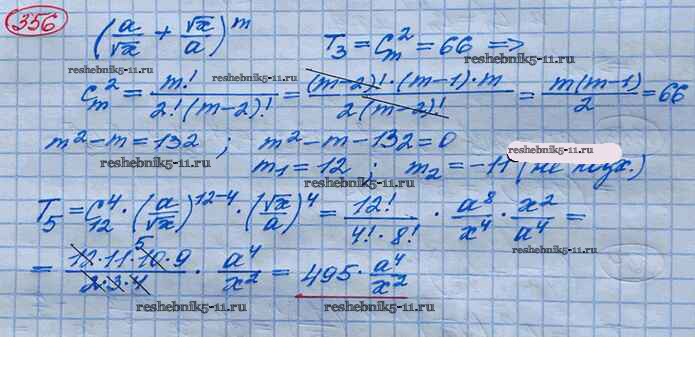 356
(a/√x + √x/a)^m   T₃ = C_m^2 = 66 =>
reshebnik5-11.ru   reshebnik5-11.ru
C_m^2 = m!/(2!(m-2)!) = ((m-2)!·(m-1)·m)/(2(m-2)!) = m(m-1)/2 = 66
m²-m=132 ; m²-m-132=0
reshebnik5-11.ru
reshebnik5-11.ru   m₁=12 ; m₂=-11 (не
T₅ = C_12^4 · (a/√x)^(12-4) · (√x/a)^4 = 12!/(4!·8!) · a⁸/x⁴ · x²/a⁴ =
reshebnik5-11.ru   reshebnik5-11.ru
= (12·11·10·9)/(2·3·4) · a⁴/x² = 495 · a⁴/x²
5
reshebnik5-11.ru   reshebnik5-11.ru